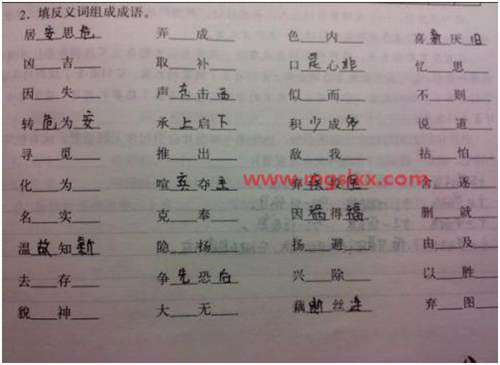 2. 填反义词组成成语。
居安思危 弄___成___ 色___内___ 喜新厌旧
凶___吉___ 取___补___ 口是心非 忆___思___
因___失___ 声东击西 似___而___ 不___则___
转危为安 承上启下 积少成多 说___道___
寻___觅___ 推___出___ 敌___我___ 拈___怕___
化___为___ 喧宾夺主 www.mgslxx.com 舍___逐___
名___实___ 克___奉___ 因祸得福 删___就___
温故知新 隐___扬___ 扬___避___ 由___及___
去___存___ 争先恐后 兴___除___ 以___胜___
貌___神___ 大___无___ 藕断丝连 弃___图___